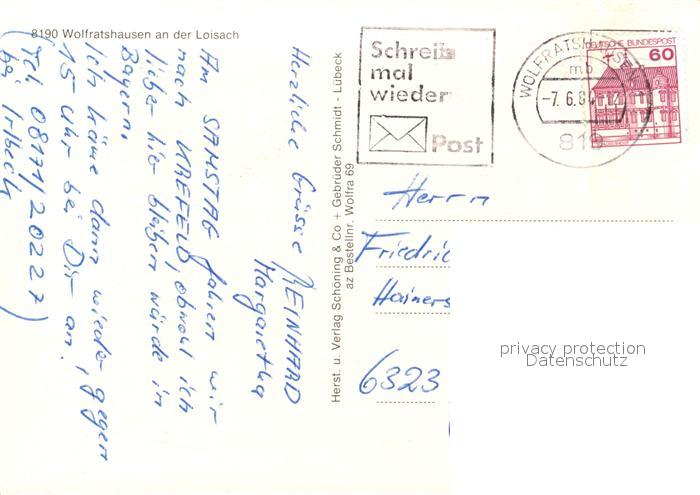 8190 Wolfratshausen an der Loisach
Herzliche Grüsse REINHARD
Margaretha
Am SAMSTAG fahren wir
nach KREFELD, obwohl ich
lieber hier bleiben würde in
Bayern.
Ich käme dann wieder, gegen
15 Uhr bei Dir an.
(Tel. 08171/20227)
bei Irlbeck
Herst. u. Verlag Schöning & Co + Gebrüder Schmidt - Lübeck
az Bestellnr. Wolfra 69
Schreib
mal
wieder
Post
WOLFRATSHAUSEN
mb
-7.6.8
819
DEUTSCHE BUNDESPOST
60
Herrn
Friedric
Hainers
6323
privacy protection
Datenschutz